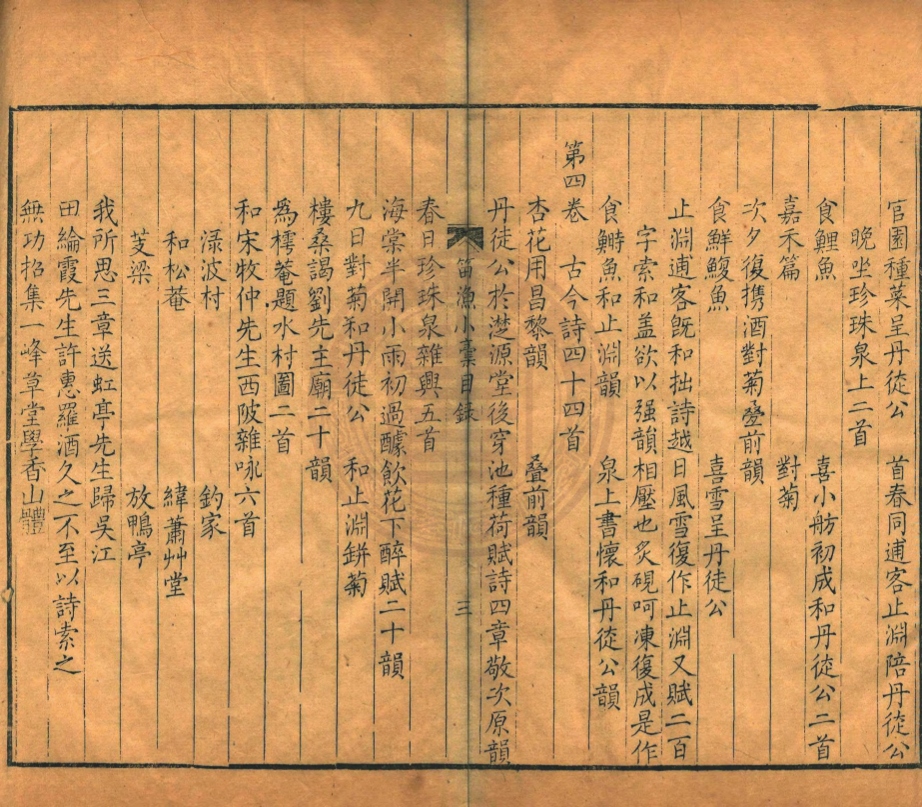 官園種菜呈丹徒公　首春同逋客止淵陪丹徒公
晚坐珍珠泉上二首
食鯉魚　喜小舫初成和丹徒公二首
嘉禾篇　對菊
次夕復携酒對菊叠前韻
食鮮鰒魚　喜雪呈丹徒公
止淵逋客旣和拙詩越日風雪復作止淵又賦二百
字索和盖欲以强韻相壓也炙硯呵凍復成是作
食鰣魚和止淵韻　泉上書懷和丹徒公韻
第四卷　古今詩四十四首
杏花用昌黎韻　叠前韻
丹徒公於澻源堂後穿池種荷賦詩四章敬次原韻
笛漁小稾目録　三
春日珍珠泉雜興五首
海棠半開小雨初過醵飲花下醉賦二十韻
九日對菊和丹徒公　和止淵缾菊
樓桑謁劉先主廟二十韻
為樗菴題水村圖二首
和宋牧仲先生西陂雜咏六首
渌波村　釣家
和松菴　緯蕭艸堂
芰梁　放鴨亭
我所思三章送虹亭先生歸吳江
田綸霞先生許惠羅酒久之不至以詩索之
無功招集一峰草堂學香山體